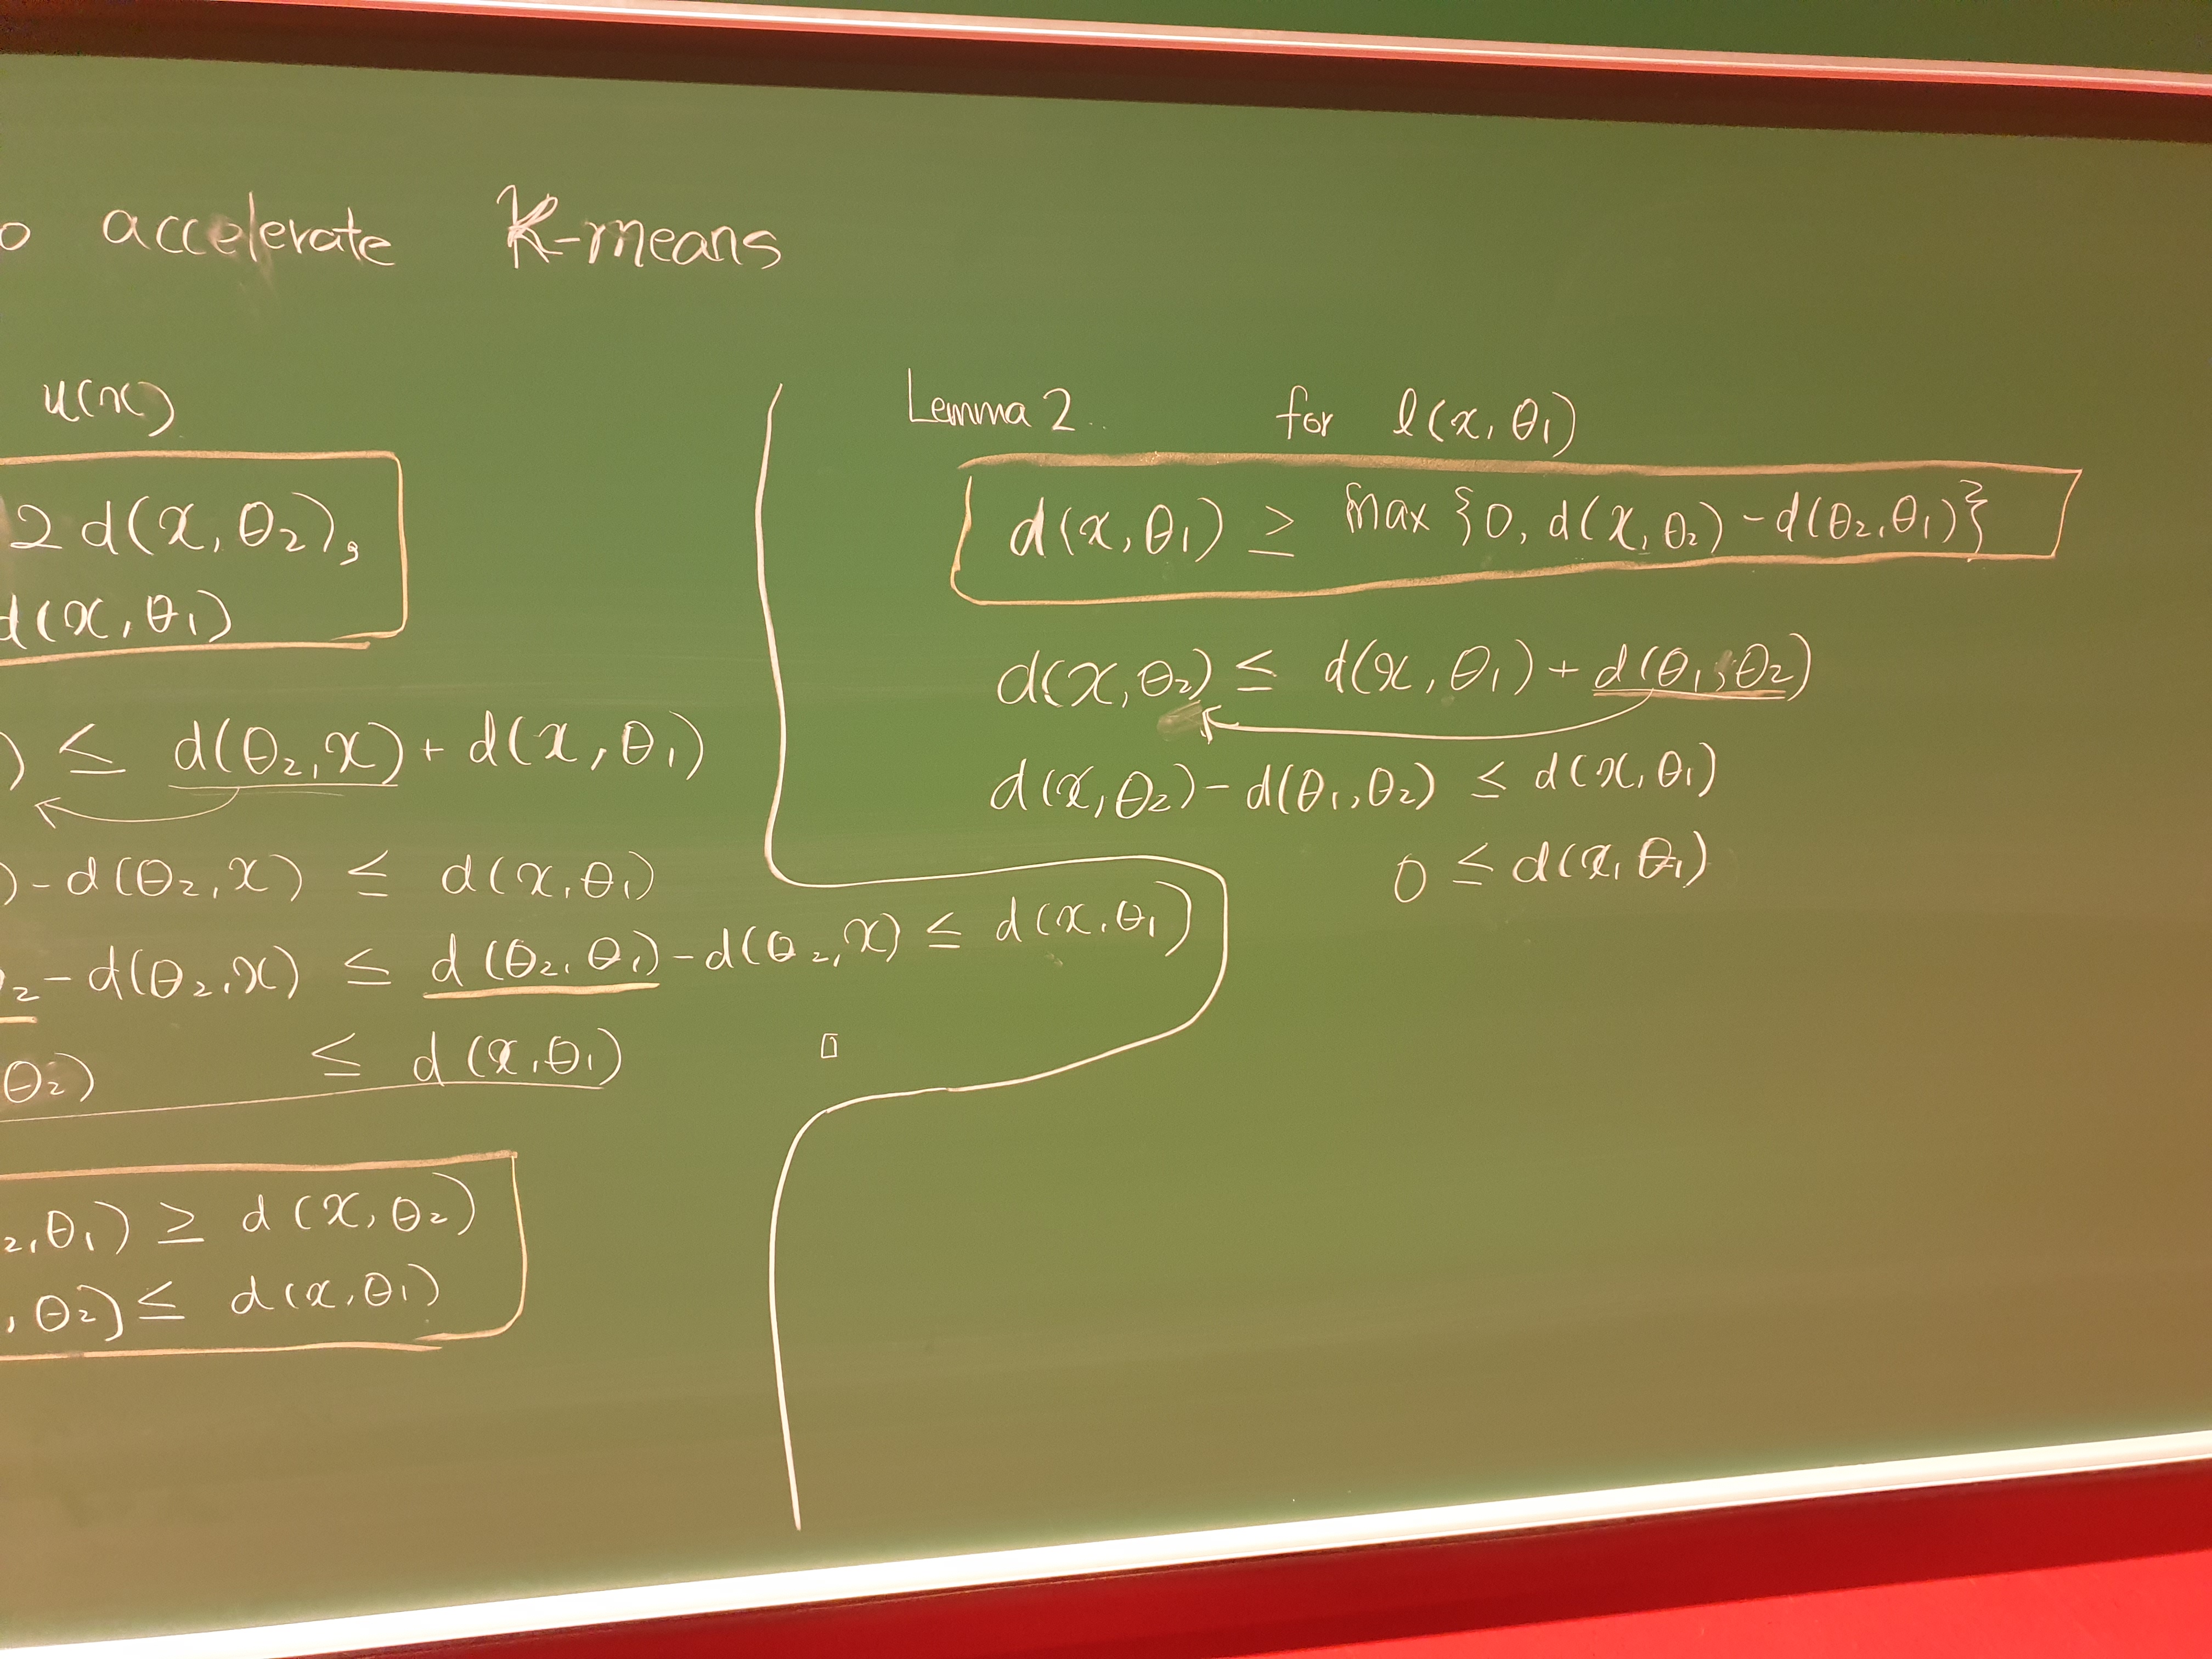 o accelerate K-means
u(x)
2 d(x, θ₂),
d(x, θ₁)
) ≤ d(θ₂, x) + d(x, θ₁)
) - d(θ₂, x) ≤ d(x, θ₁)
₂ - d(θ₂, x) ≤ d(θ₂, θ₁) - d(θ₂, x) ≤ d(x, θ₁)
θ₂) ≤ d(x, θ₁) □
₂, θ₁) ≥ d(x, θ₂)
, θ₂) ≤ d(x, θ₁)
Lemma 2.. for l(x, θ₁)
d(x, θ₁) ≥ max {0, d(x, θ₂) - d(θ₂, θ₁)}
d(x, θ₂) ≤ d(x, θ₁) + d(θ₁, θ₂)
d(x, θ₂) - d(θ₁, θ₂) ≤ d(x, θ₁)
0 ≤ d(x, θ₁)